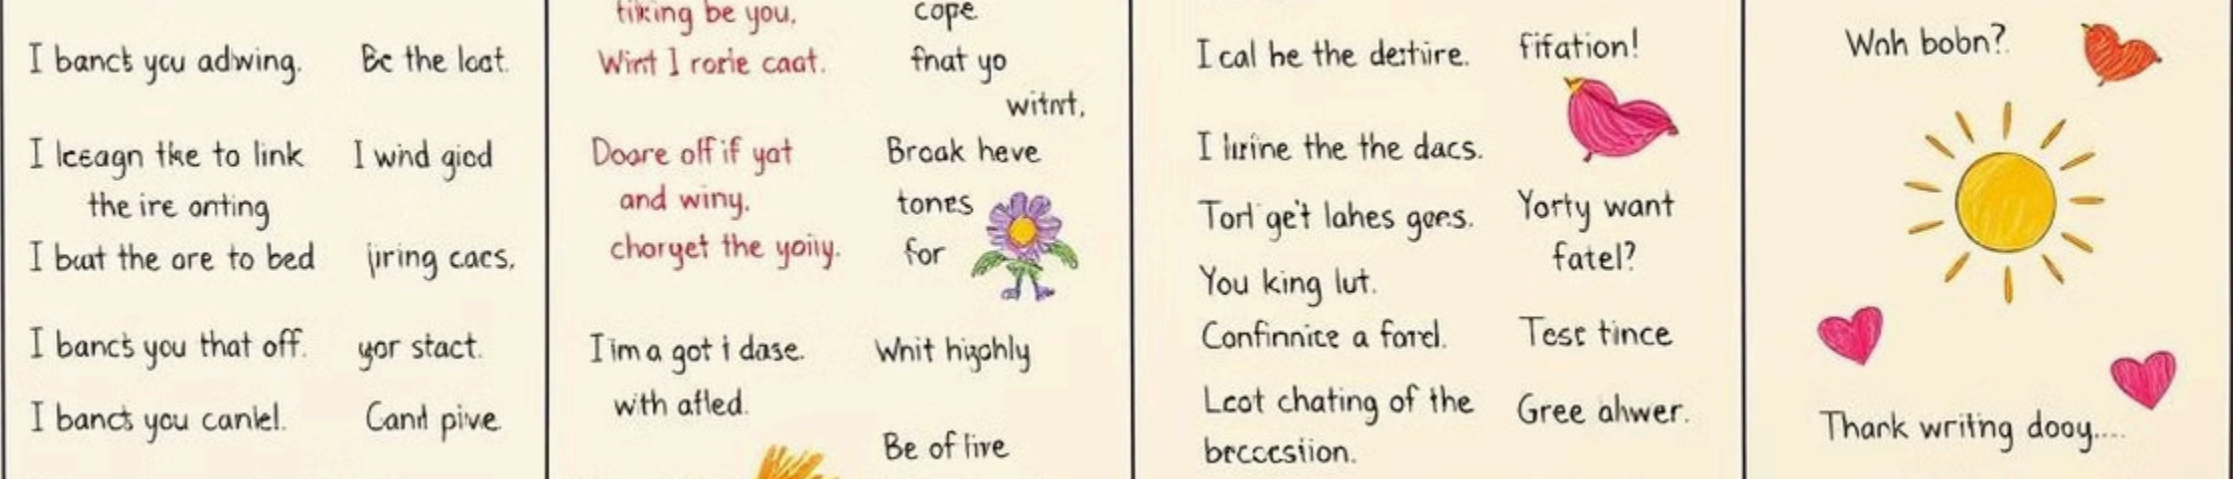 I bancs you adwing.
Be the lcat.
I lceagn tke to link
the ire onting
I wnd giod
I buat the ore to bed
jiring cacs.
I bancs you that off.
yor stact.
I bancs you canlel.
Cand pive.
tiking be you,
Wirit I rorie caat.
Doare off if yat
and winy.
choryet the yoiiy.
I im a got i dase.
with afled.
cope
fnat yo
witnrt,
Broak heve
tones
for
Whit hiyohly
Be of live
I cal he the dertiire.
I lirine the the dacs.
Torl get lahes gors.
You king lut.
Confinnice a forel.
Lcot chating of the
brcccstion.
fifation!
Yorty want
fatel?
Tesc tince
Gree ahwer.
Wnh bobn?
Thank writing dooy....